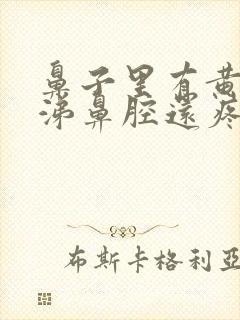 鼻子里有黄
涕鼻腔还疼
布斯卡格利亚